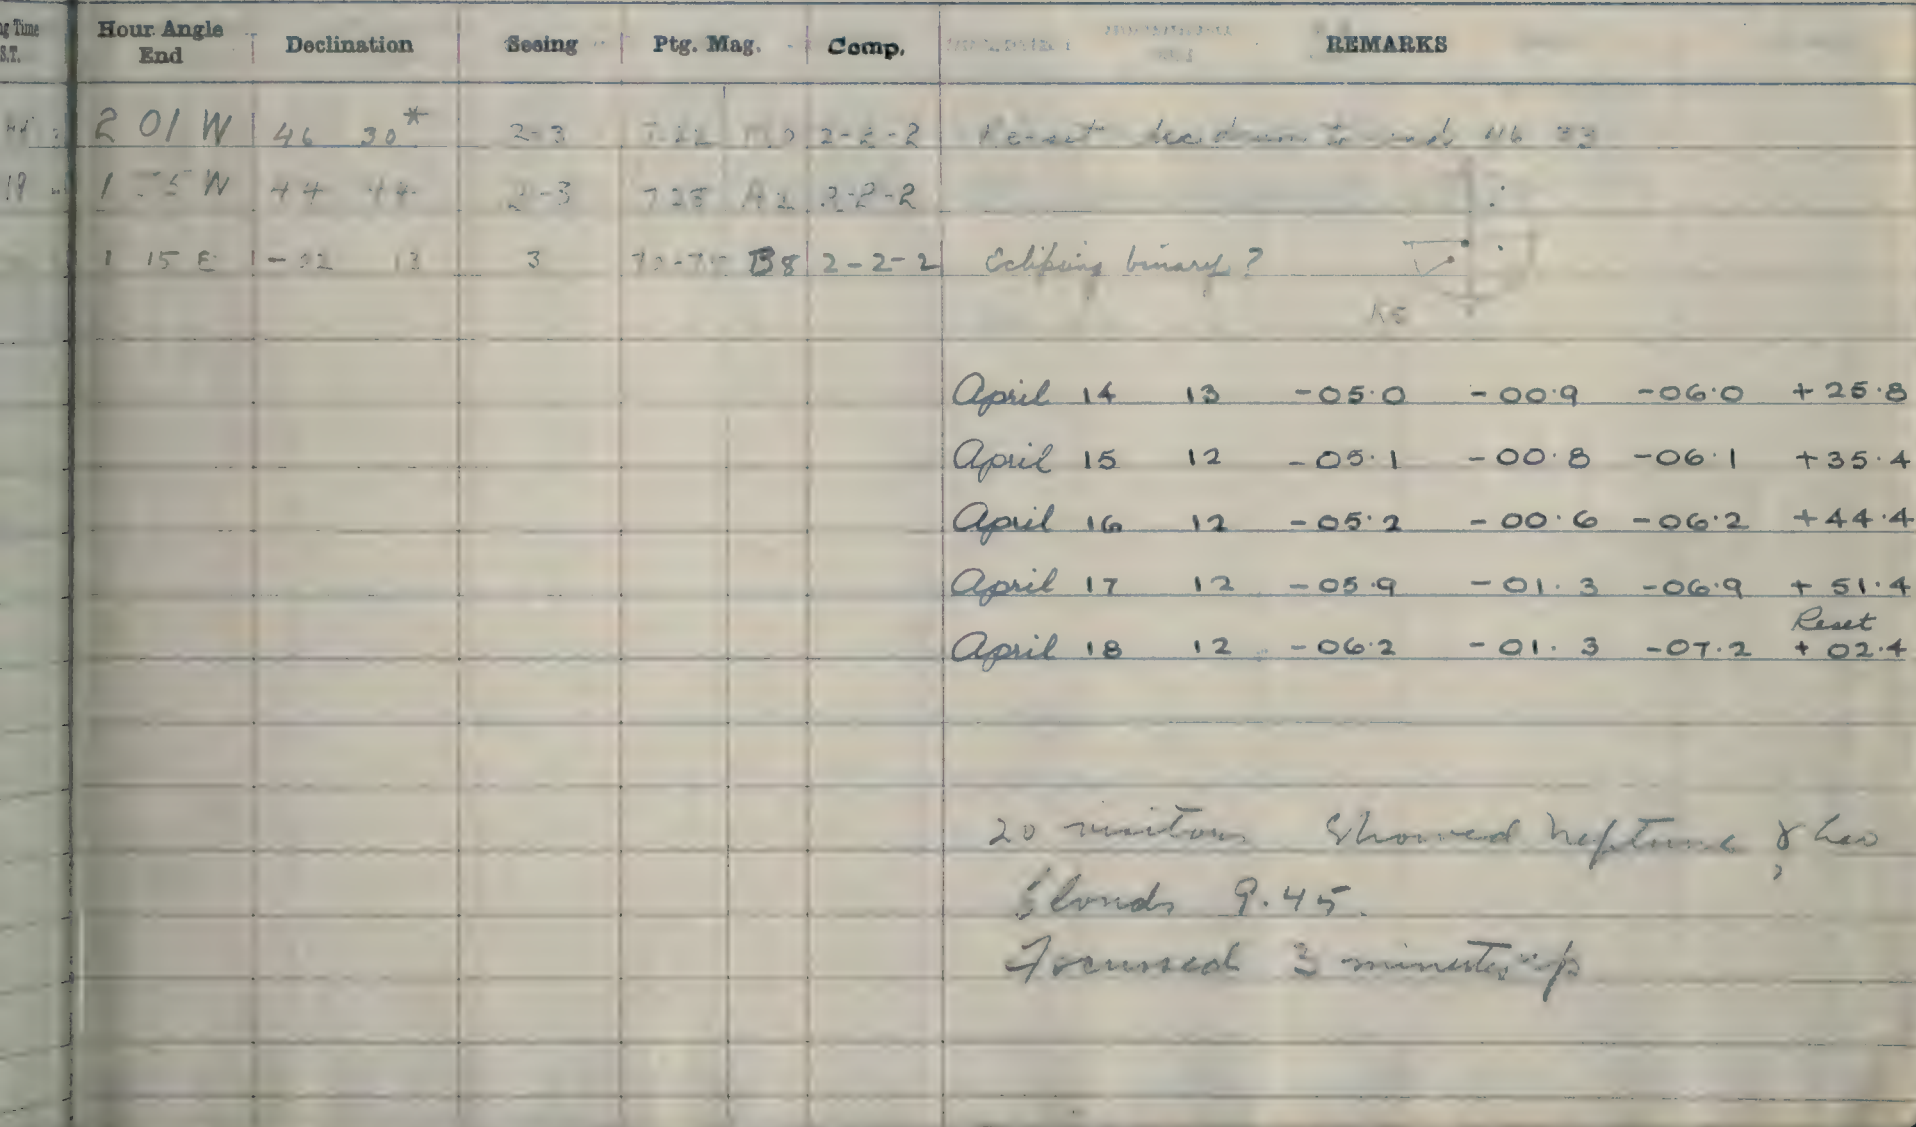 Hour Angle End Declination Seeing Ptg. Mag. Comp. REMARKS
2 01 W 46 30* 2-3 2-2-2 Re-set
1 55 W 44 44 2-3 7.28 A2 2-2-2
1 15 E 3 B8 2-2-2 Eclipsing binary?
April 14 13 -05.0 -00.9 -06.0 +25.8
April 15 12 -05.1 -00.8 -06.1 +35.4
April 16 12 -05.2 -00.6 -06.2 +44.4
April 17 12 -05.9 -01.3 -06.9 +51.4
Reset
April 18 12 -06.2 -01.3 -07.2 +02.4
20 visitors Showed Neptune, γ Leo
Clouds 9.45.
Focussed 3 minutes up